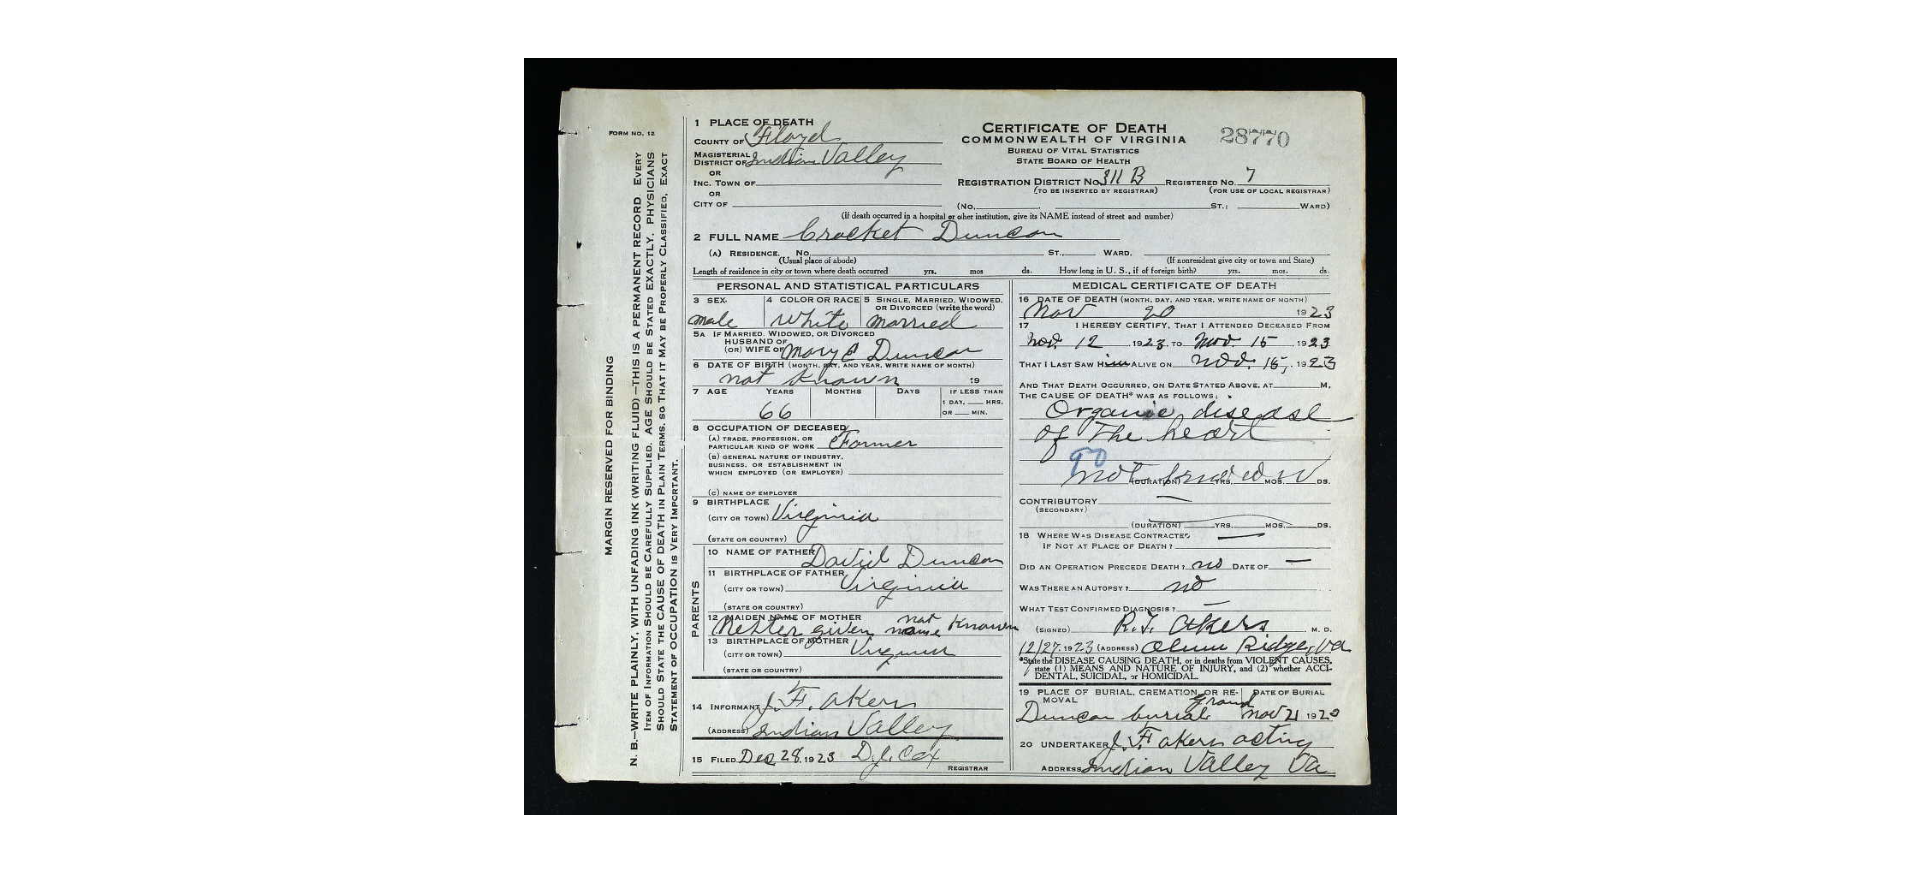 FORM NO. 12
MARGIN RESERVED FOR BINDING
N. B.—WRITE PLAINLY, WITH UNFADING INK (WRITING FLUID)—THIS IS A PERMANENT RECORD. EVERY
ITEM OF INFORMATION SHOULD BE CAREFULLY SUPPLIED. AGE SHOULD BE STATED EXACTLY. PHYSICIANS
SHOULD STATE THE CAUSE OF DEATH IN PLAIN TERMS, SO THAT IT MAY BE PROPERLY CLASSIFIED. EXACT
STATEMENT OF OCCUPATION IS VERY IMPORTANT.
1 PLACE OF DEATH
COUNTY OF Floyd
MAGISTERIAL
DISTRICT OF Indian Valley
OR
INC. TOWN OF
OR
CITY OF
CERTIFICATE OF DEATH
COMMONWEALTH OF VIRGINIA
BUREAU OF VITAL STATISTICS
STATE BOARD OF HEALTH
28770
REGISTRATION DISTRICT NO. 311 B REGISTERED NO. 7
(TO BE INSERTED BY REGISTRAR) (FOR USE OF LOCAL REGISTRAR)
(No. ST.; WARD)
(If death occurred in a hospital or other institution, give its NAME instead of street and number)
2 FULL NAME Crocket Duncan
(A) RESIDENCE. No. ST., WARD.
(Usual place of abode) (If nonresident give city or town and State)
Length of residence in city or town where death occurred yrs. mos ds. How long in U. S., if of foreign birth? yrs. mos. ds.
PERSONAL AND STATISTICAL PARTICULARS
3 SEX 4 COLOR OR RACE 5 SINGLE, MARRIED, WIDOWED,
OR DIVORCED (write the word)
male White married
5A IF MARRIED, WIDOWED, OR DIVORCED
HUSBAND OF
(OR) WIFE OF Mary E Duncan
6 DATE OF BIRTH (MONTH, DAY, AND YEAR, WRITE NAME OF MONTH)
not Known 19
7 AGE YEARS MONTHS DAYS IF LESS THAN
1 DAY, HRS.
OR MIN.
66
8 OCCUPATION OF DECEASED
(A) TRADE, PROFESSION, OR
PARTICULAR KIND OF WORK Farmer
(B) GENERAL NATURE OF INDUSTRY,
BUSINESS, OR ESTABLISHMENT IN
WHICH EMPLOYED (OR EMPLOYER)
(C) NAME OF EMPLOYER
9 BIRTHPLACE
(CITY OR TOWN) Virginia
(STATE OR COUNTRY)
PARENTS
10 NAME OF FATHER David Duncan
11 BIRTHPLACE OF FATHER
(CITY OR TOWN) Virginia
(STATE OR COUNTRY)
12 MAIDEN NAME OF MOTHER not Known
Hester given name
13 BIRTHPLACE OF MOTHER
(CITY OR TOWN) Virginia
(STATE OR COUNTRY)
14 INFORMANT J. F. Akers
(ADDRESS) Indian Valley
15 FILED Dec 28, 1923 D. J. Cox
REGISTRAR
MEDICAL CERTIFICATE OF DEATH
16 DATE OF DEATH (MONTH, DAY, AND YEAR, WRITE NAME OF MONTH)
Nov 20 1923
17 I HEREBY CERTIFY, THAT I ATTENDED DECEASED FROM
Nov. 12 1923 TO Nov. 15 1923
THAT I LAST SAW HIM ALIVE ON Nov. 15, 1923
AND THAT DEATH OCCURRED, ON DATE STATED ABOVE, AT M.
THE CAUSE OF DEATH* WAS AS FOLLOWS:
Organic disease
of The heart
90
not (DURATION) YRS. MOS. DS.
CONTRIBUTORY
(SECONDARY)
(DURATION) YRS. MOS. DS.
18 WHERE WAS DISEASE CONTRACTED
IF NOT AT PLACE OF DEATH?
DID AN OPERATION PRECEDE DEATH? no DATE OF —
WAS THERE AN AUTOPSY? no
WHAT TEST CONFIRMED DIAGNOSIS? —
(SIGNED) R. T. Akers M. D.
12/27, 1923 (ADDRESS) Ridge, Va
*State the DISEASE CAUSING DEATH, or in deaths from VIOLENT CAUSES,
state (1) MEANS AND NATURE OF INJURY, and (2) whether ACCI-
DENTAL, SUICIDAL, or HOMICIDAL.
19 PLACE OF BURIAL, CREMATION, OR RE- DATE OF BURIAL
MOVAL
Duncan burial ground Nov 21 1923
20 UNDERTAKER J. F. Akers acting
ADDRESS Indian Valley Va